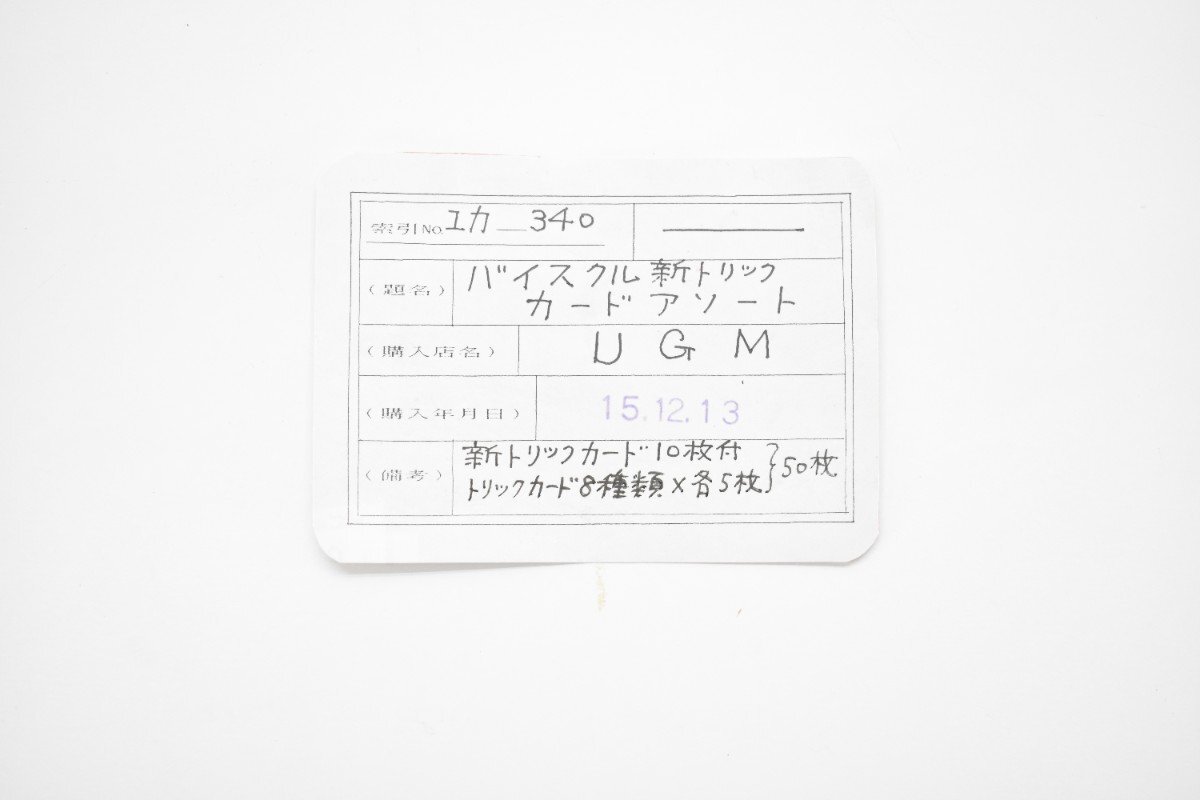 索引No. ユカ — 340
(題名) バイスクル 新トリック
カード アソート
(購入店名) UGM
(購入年月日) 15.12.13
(備考) 新トリックカード10枚付
トリックカード8種類×各5枚}50枚